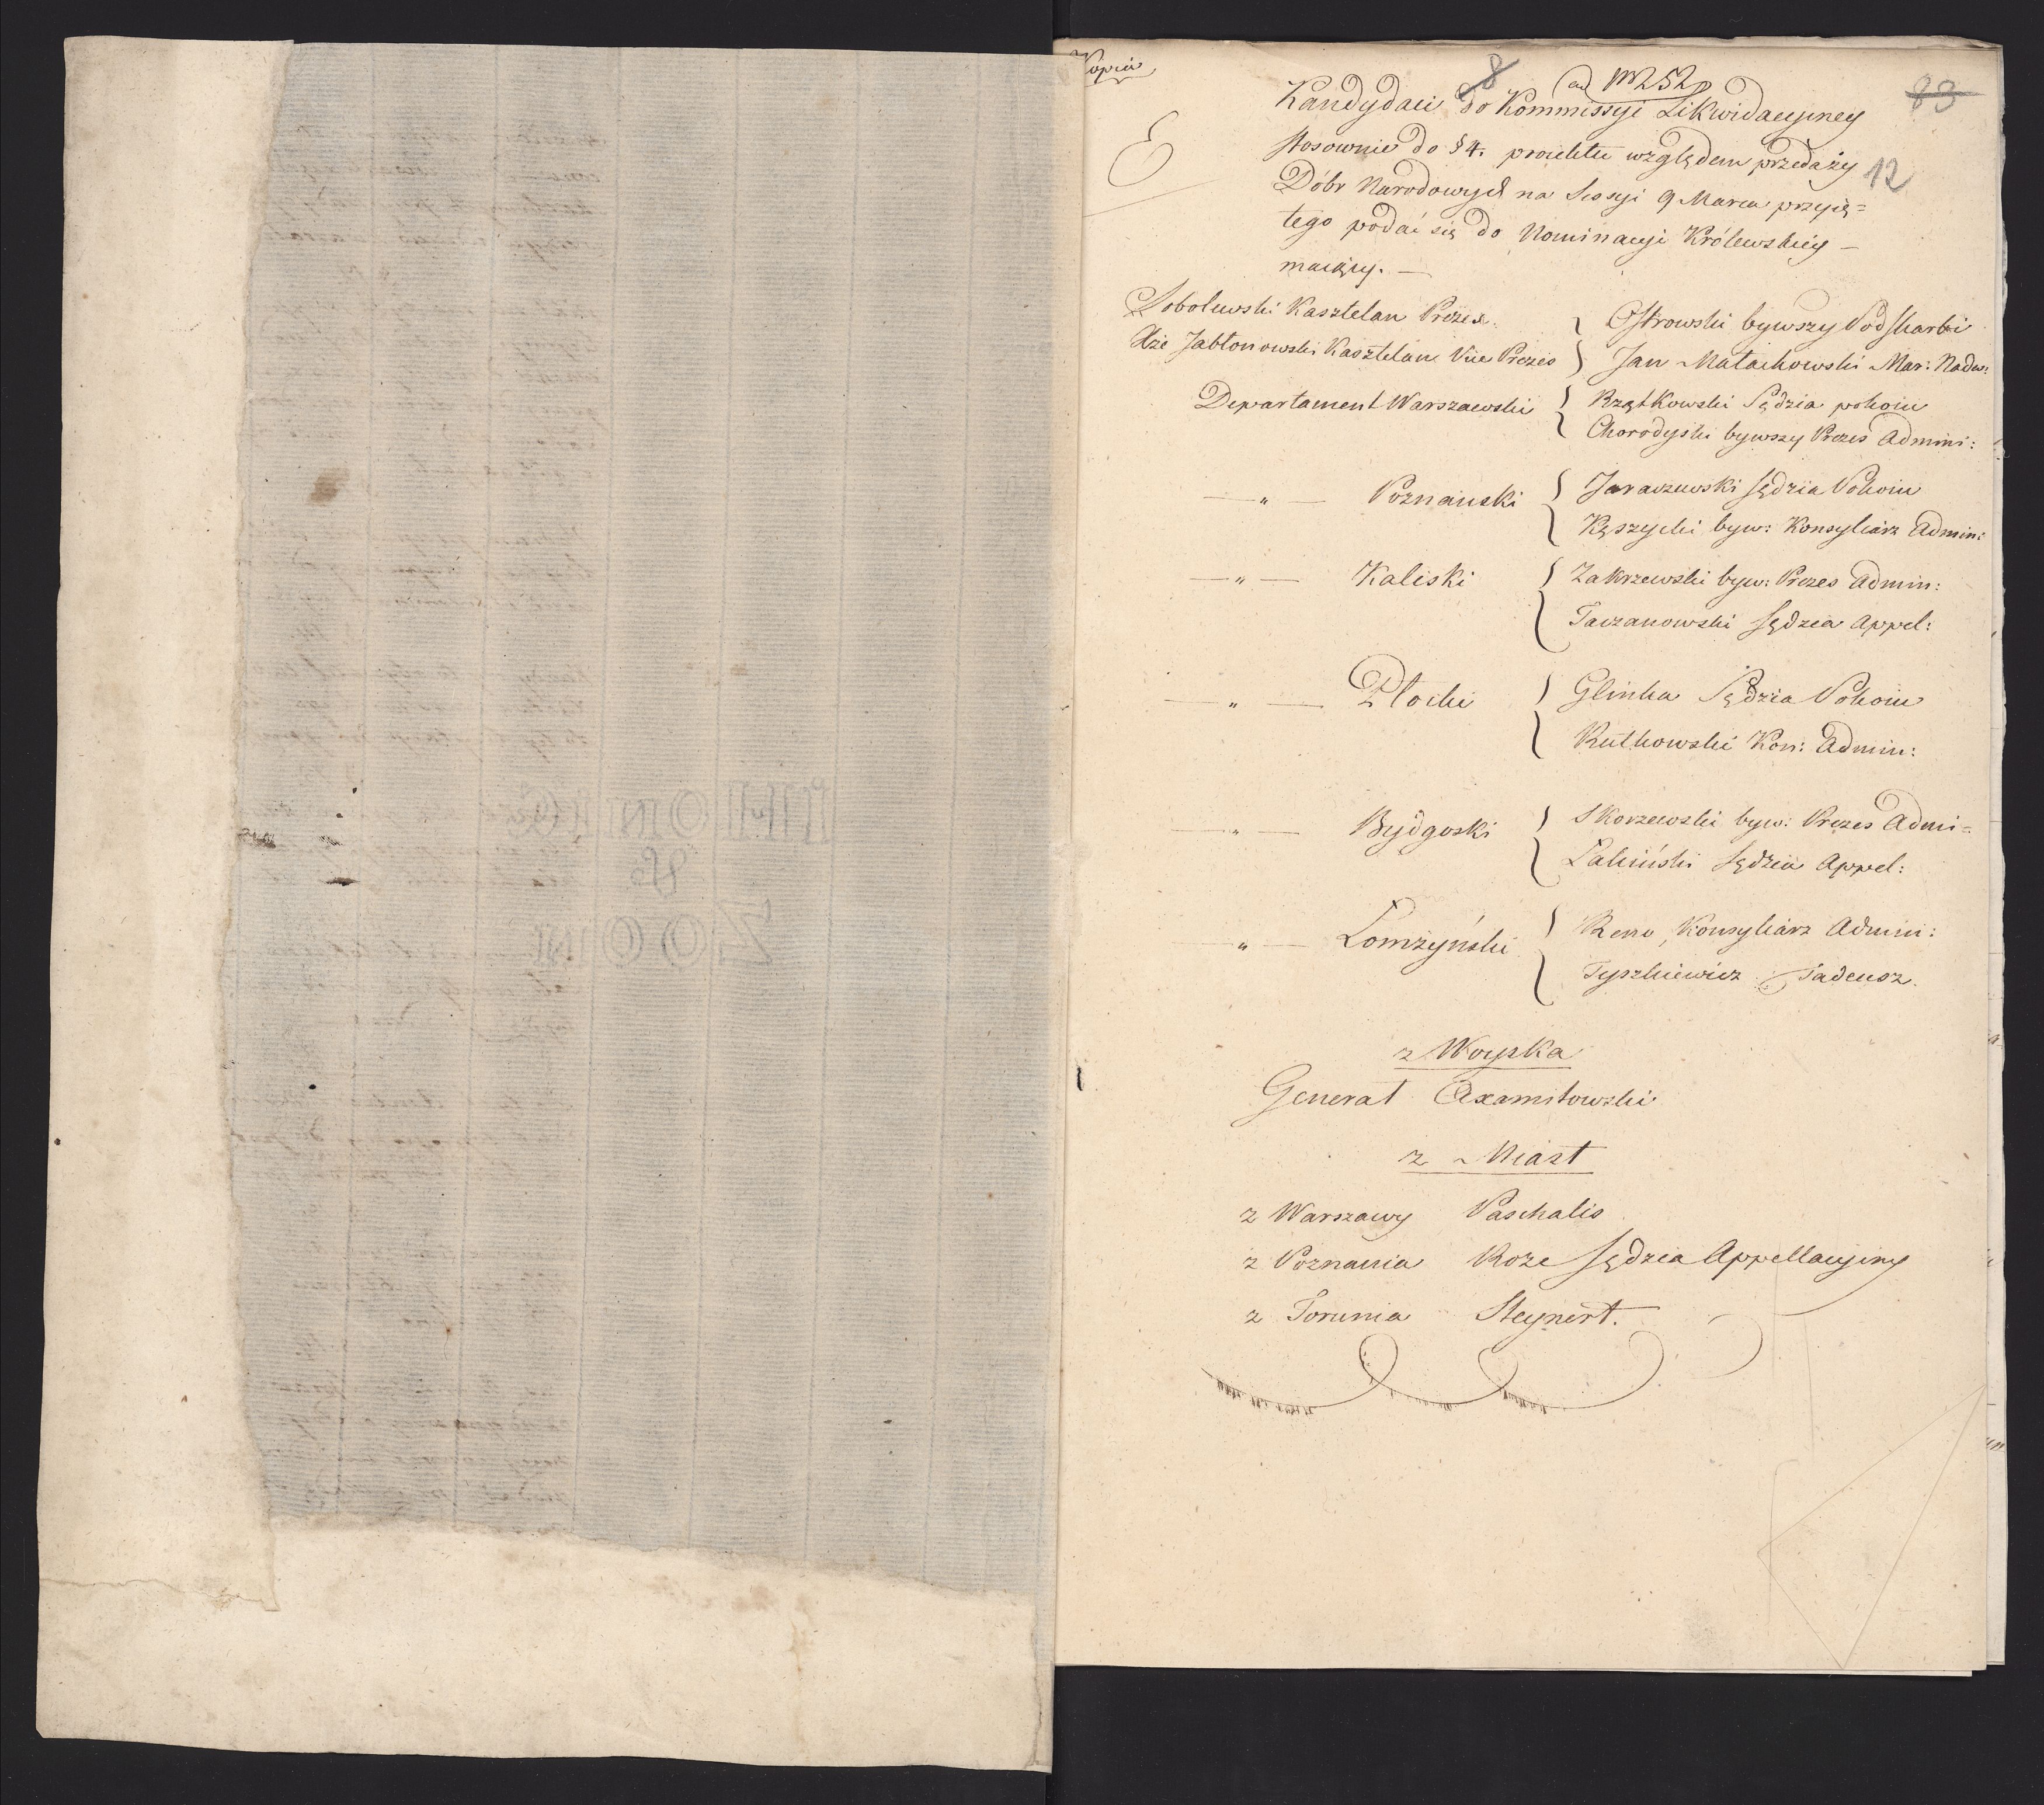 Kopia
8
ad N 252
83
Kandydaci do Kommissyi Likwidacyiney
E
stosownie do § 4. proiektu względem przedaży
12
Dóbr Narodowych na Sessyi 9 Marca przyię=
tego podać się do Nominacyi Królewskiéy —
maiący. —
Sobolewski Kasztelan Prezes.
Ostrowski bywszy Podskarbi
Xże Jabłonowski Kasztelan Vice Prezes
Jan Małachowski Mar: Nadw:
Departament Warszawski { Rzętkowski Sędzia pokoiu
Chorodyski bywszy Prezes Admini:
— „ — Poznański { Jaraczewski Sędzia Pokoiu
Kęszycki byw: Konsyliarz Admin:
— „ — Kaliski { Zakrzewski byw: Prezes Admin:
Taczanowski Sędzia Appel:
— „ — Płocki { Glinka Sędzia Pokoiu
Rutkowski Kon: Admin:
— „ — Bydgoski { Skorzewski byw: Prezes Admi=
Lakiński Sędzia Appel:
„ — Lomżyński { Konsyliarz Admini:
Tyszkiewicz Tadeusz.
z Woyska
Generał Axamitowski
z Miast
z Warszawy Paschalis
z Poznania Roze Sędzia Appellacyiny
z Torunia Steynert.